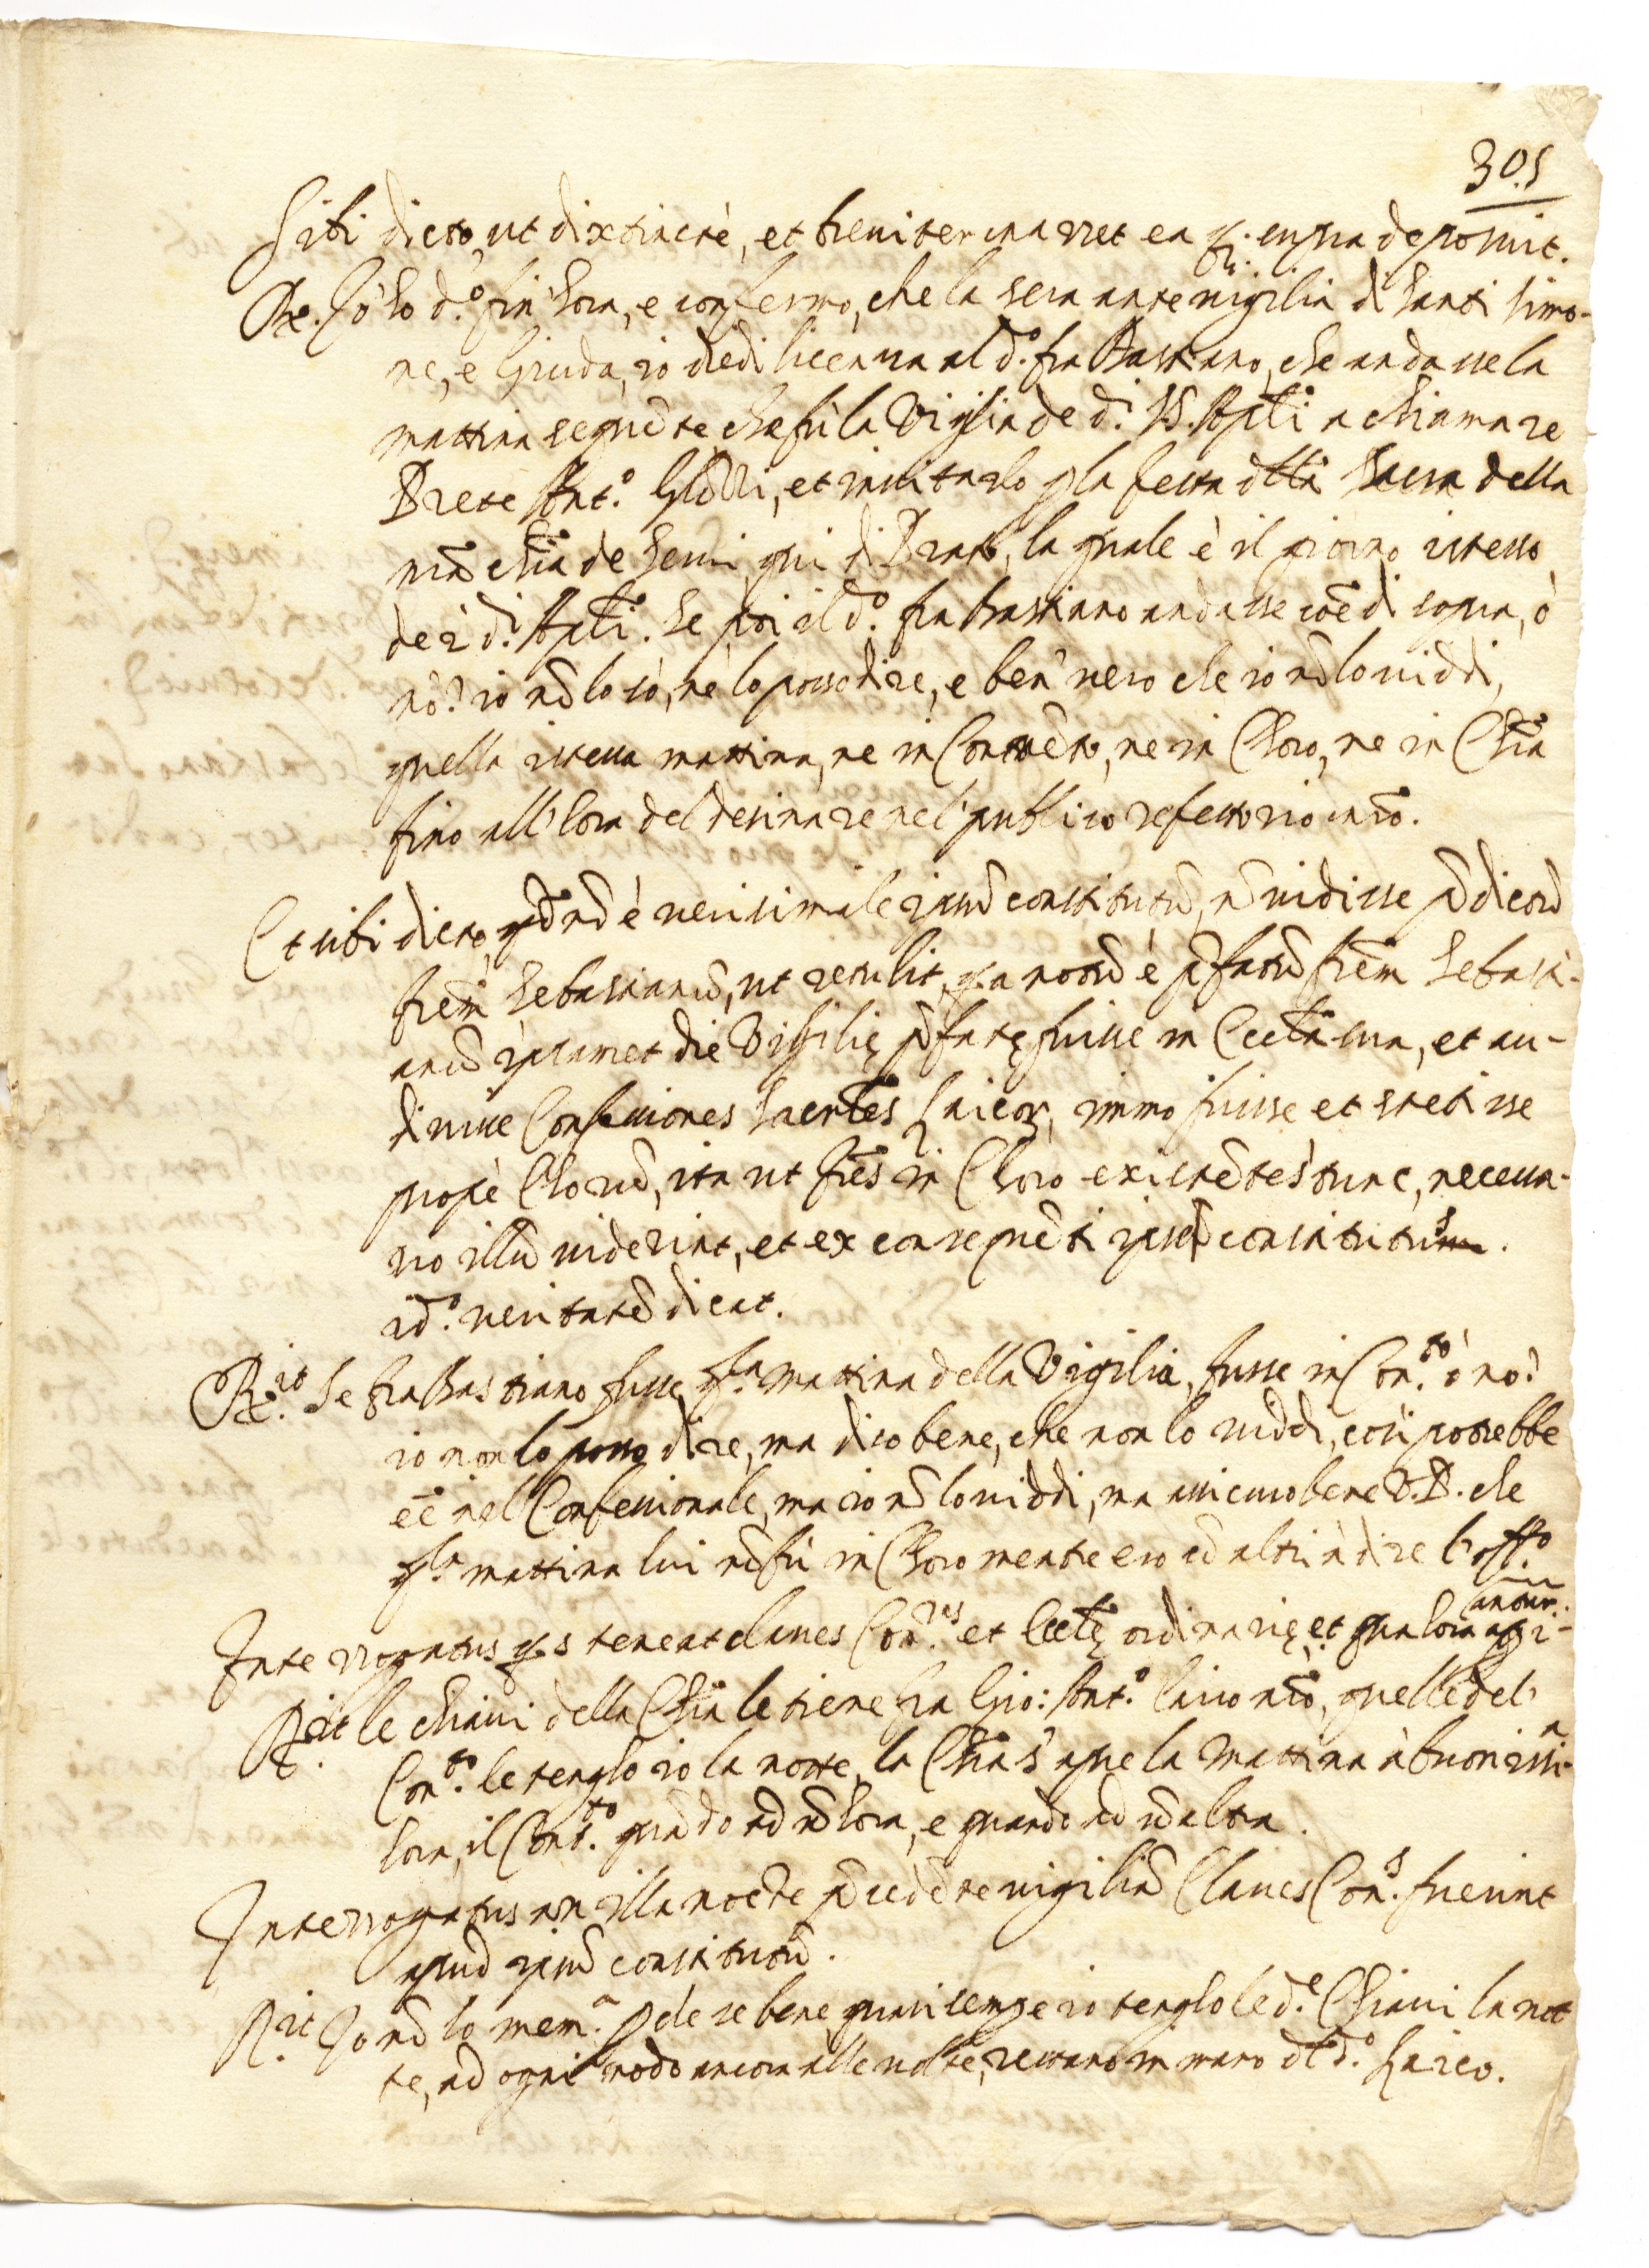 305
Sibi dicto, ut distinctè, et breviter enarret ea q. supra deposuit.
Rx. Io hò d.º fin' hora, e confermo, che la sera antevigilia di Santi Simo-
ne, e Giuda, io diedi licenza al d.º fra Bastiano, che andasse la
mattina seguẽte che fù la Vigilia de d.i SS. Apĺi a chiamare
Prete Ant.º et invitarlo p la festa dlla Sacra della
nrã Chĩa de Servi qui di Prato, la quale è il giorno istesso
de i d.i Apĺi. Se poi il d.º fra Bastiano andasse coẽ di sopra, ò
nò? io nõ lo sò, nè lo posso dire, e ben' vero che io nõ lo viddi,
quella istessa mattina, ne in Convẽto, ne in Choro, ne in Chĩa
fino all' hora del desinare nel publico refettorio nrõ.
Et sibi dicto, qd nõ è verisimile ipsũ constitutũ, nõ vidisse p̃dictũ
frẽm Sebastianũ, ut retulit, q.a notũ è p̃fatũ frẽm Sebasti-
anũ ipsamet die Vigilię p̃fatę fuisse in Eccĺa sua, et au-
divisse Confessiones Laicor, immo fuisse et stetisse
propè Chorũ, ita ut frẽs in Choro existẽtes tunc, necessa-
rio illũ viderint, et ex consequẽti ipse constitutus.
id.º veritatẽ dicat.
Rx.it Se fra Bastiano fusse q.la mattina della Vigilia, fusse in Con.to ò nò?
io non lo posso dire, ma dico bene, che non lo viddi, così potrebbe
eẽ nel Confessionale, ma io nõ lo viddi, ma assicuro bene V.P. che
q.la mattina lui nõ fù in Choro mentre ero cõ altri à dire l'off.º
Interrogatus q.s teneat claves Con.us et Eccĺę ordinarię et qua hora apri-
antur.
Rx.it le chiavi della Chĩa le tiene fra Gio: Ant.º laico nrõ, quelle del
Con.to le tengho io la notte, la Chĩa s' apre la mattina à buonissi-
ma hora, il Con.to quãdo ad ũ hora, e quando ad ũ altra.
Interrogatus an illa nocte p̃cedẽte vigiliã Claves Con.s fuerint
apud ipsũ constitutũ.
Rx.it Io nõ lo mem.a p che se bene quasi sempre io tengho le d.e Chiavi la not
te, ad ogni modo ancora alle volte, restano in mano dl d.º Laico.